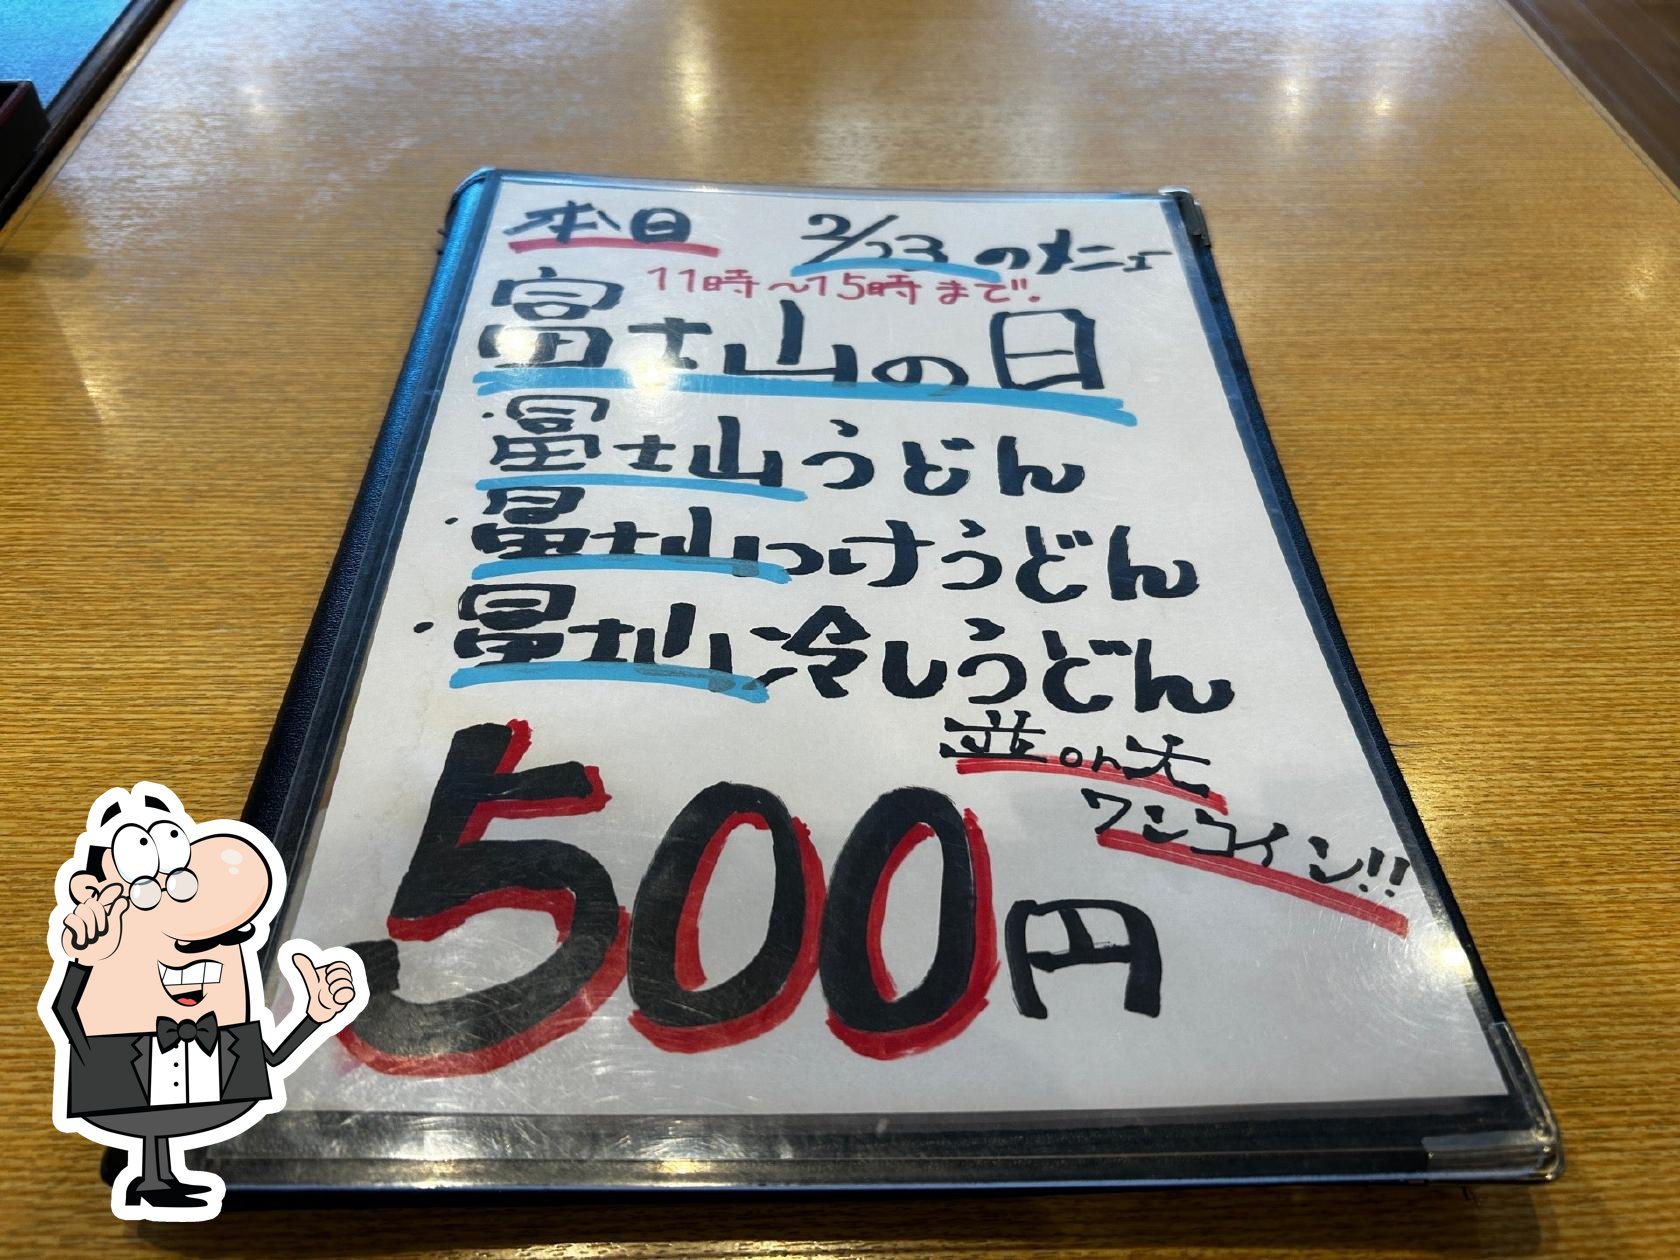 本日 2/23のメニュー
11時〜15時まで.
富士山の日
・冨士山うどん
・冨士山つけうどん
・冨士山冷しうどん
並or大
ワンコイン!!
500円